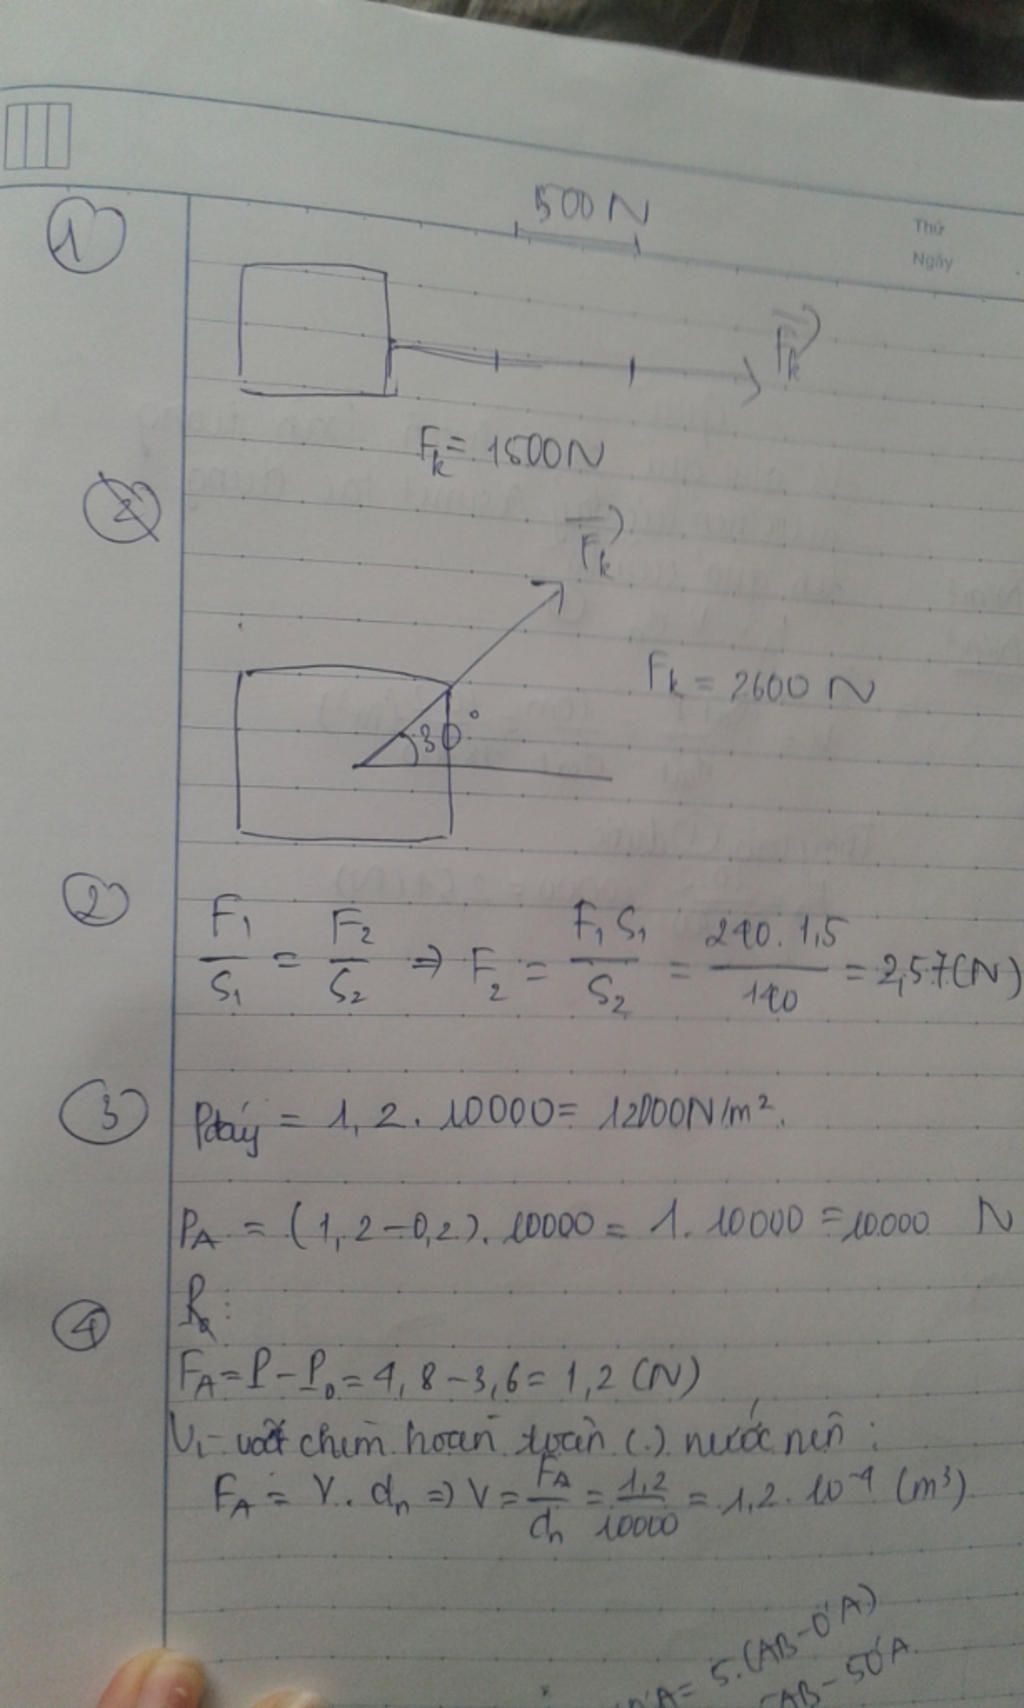 500N
Thứ
Ngày
1
Fk
Fk = 1500N
2
Fk
Fk = 2600 N
30°
2
F1/S1 = F2/S2 => F2 = F1 S1/S2 = 240. 1,5/140 = 2,57(N)
3
Pđáy = 1, 2. 10000 = 12000N/m².
PA = (1, 2 - 0,2). 10000 = 1. 10000 = 10000 N
4
FA = P - P0 = 4, 8 - 3,6 = 1, 2 (N)
Vì vật chìm hoàn toàn (.) nước nên :
FA = V. dn => V = FA/dn = 1,2/10000 = 1,2. 10⁻⁴ (m³).
A = 5.(AB - O'A)
AB - 5O'A.